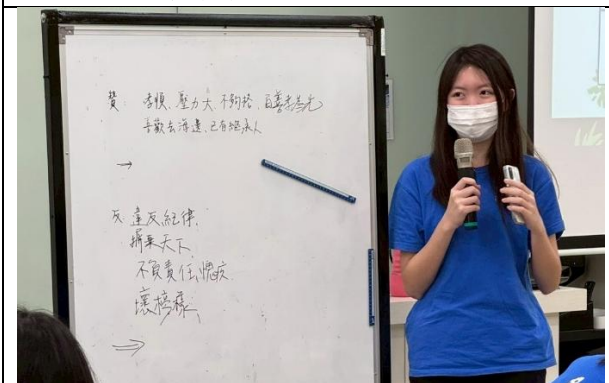 贊: 孝順、壓力大、不夠格、百善孝為先
喜歡去海邊、已有繼承人
→
反 違反紀律、
摒棄天下
不負責任、愧疚
壞榜樣
⇒